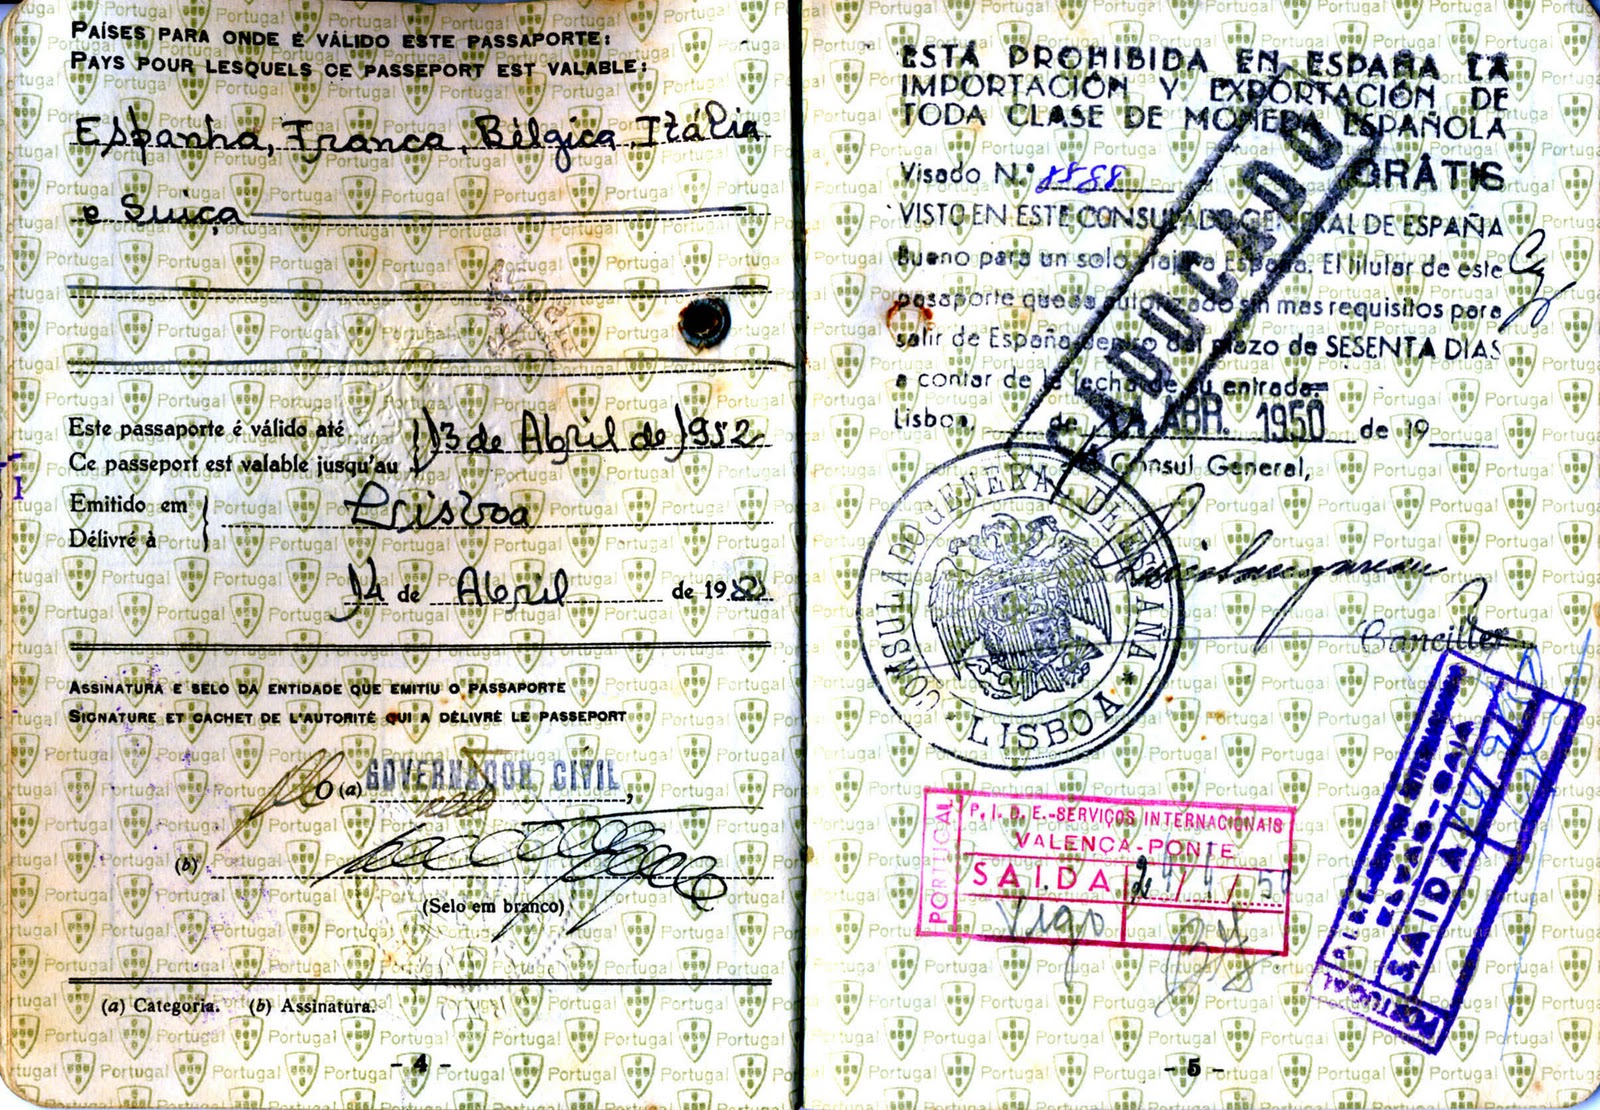 PAÍSES PARA ONDE É VÁLIDO ESTE PASSAPORTE:
PAYS POUR LESQUELS CE PASSEPORT EST VALABLE:
Espanha, França, Bélgica, Itália
e Suiça
Este passaporte é válido até
13 de Abril de 1952
Ce passeport est valable jusqu'au
Emitido em
Lisboa
Délivré à
14 de Abril de 1950
ASSINATURA E SELO DA ENTIDADE QUE EMITIU O PASSAPORTE
SIGNATURE ET CACHET DE L'AUTORITÉ QUI A DÉLIVRÉ LE PASSEPORT
O (a) GOVERNADOR CIVIL,
(b)
(Selo em branco)
(a) Categoria. (b) Assinatura.
- 4 -
ESTÁ PROHIBIDA EN ESPAÑA LA
IMPORTACIÓN Y EXPORTACIÓN DE
TODA CLASE DE MONEDA ESPAÑOLA
Visado N.º 8888 GRÁTIS
VISTO EN ESTE CONSULADO GENERAL DE ESPAÑA
Bueno para un solo viaje a España. El titular de este
pasaporte queda autorizado sin mas requisitos para
salir de España dentro del plazo de SESENTA DIAS
a contar de la fecha de su entrada
Lisboa, de 14 ABR. 1950 de 19
Consul General,
Canciller
CONSULADO GENERAL DE ESPAÑA
* LISBOA *
PORTUGAL
P. I. D. E.-SERVIÇOS INTERNACIONAIS
VALENÇA-PONTE
SAIDA 24/4/50
Vigo
PORTUGAL
ELVAS-CAIA
SAIDA
- 5 -